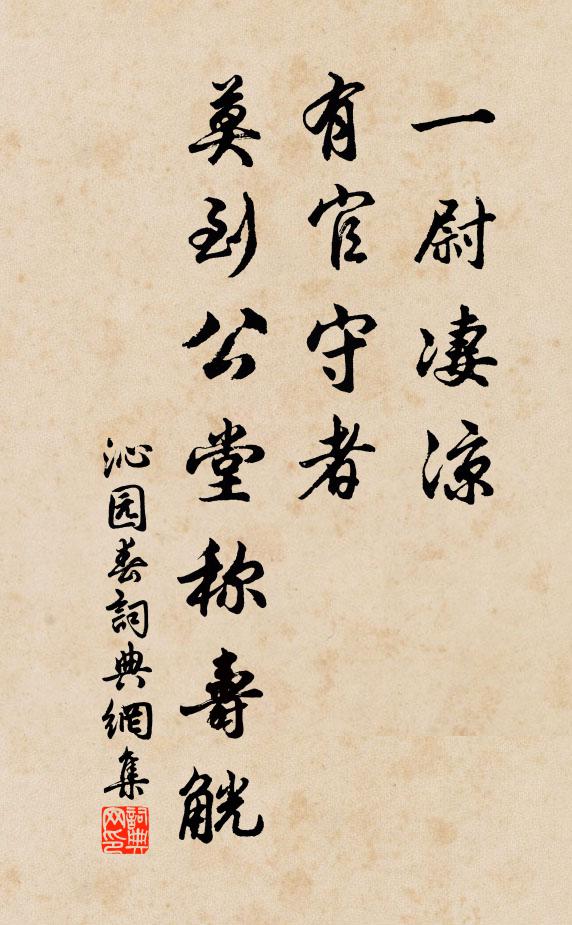 一尉凄凉
有官守者
莫到公堂称壽觥
沁园春詞典網集
詞典
网印